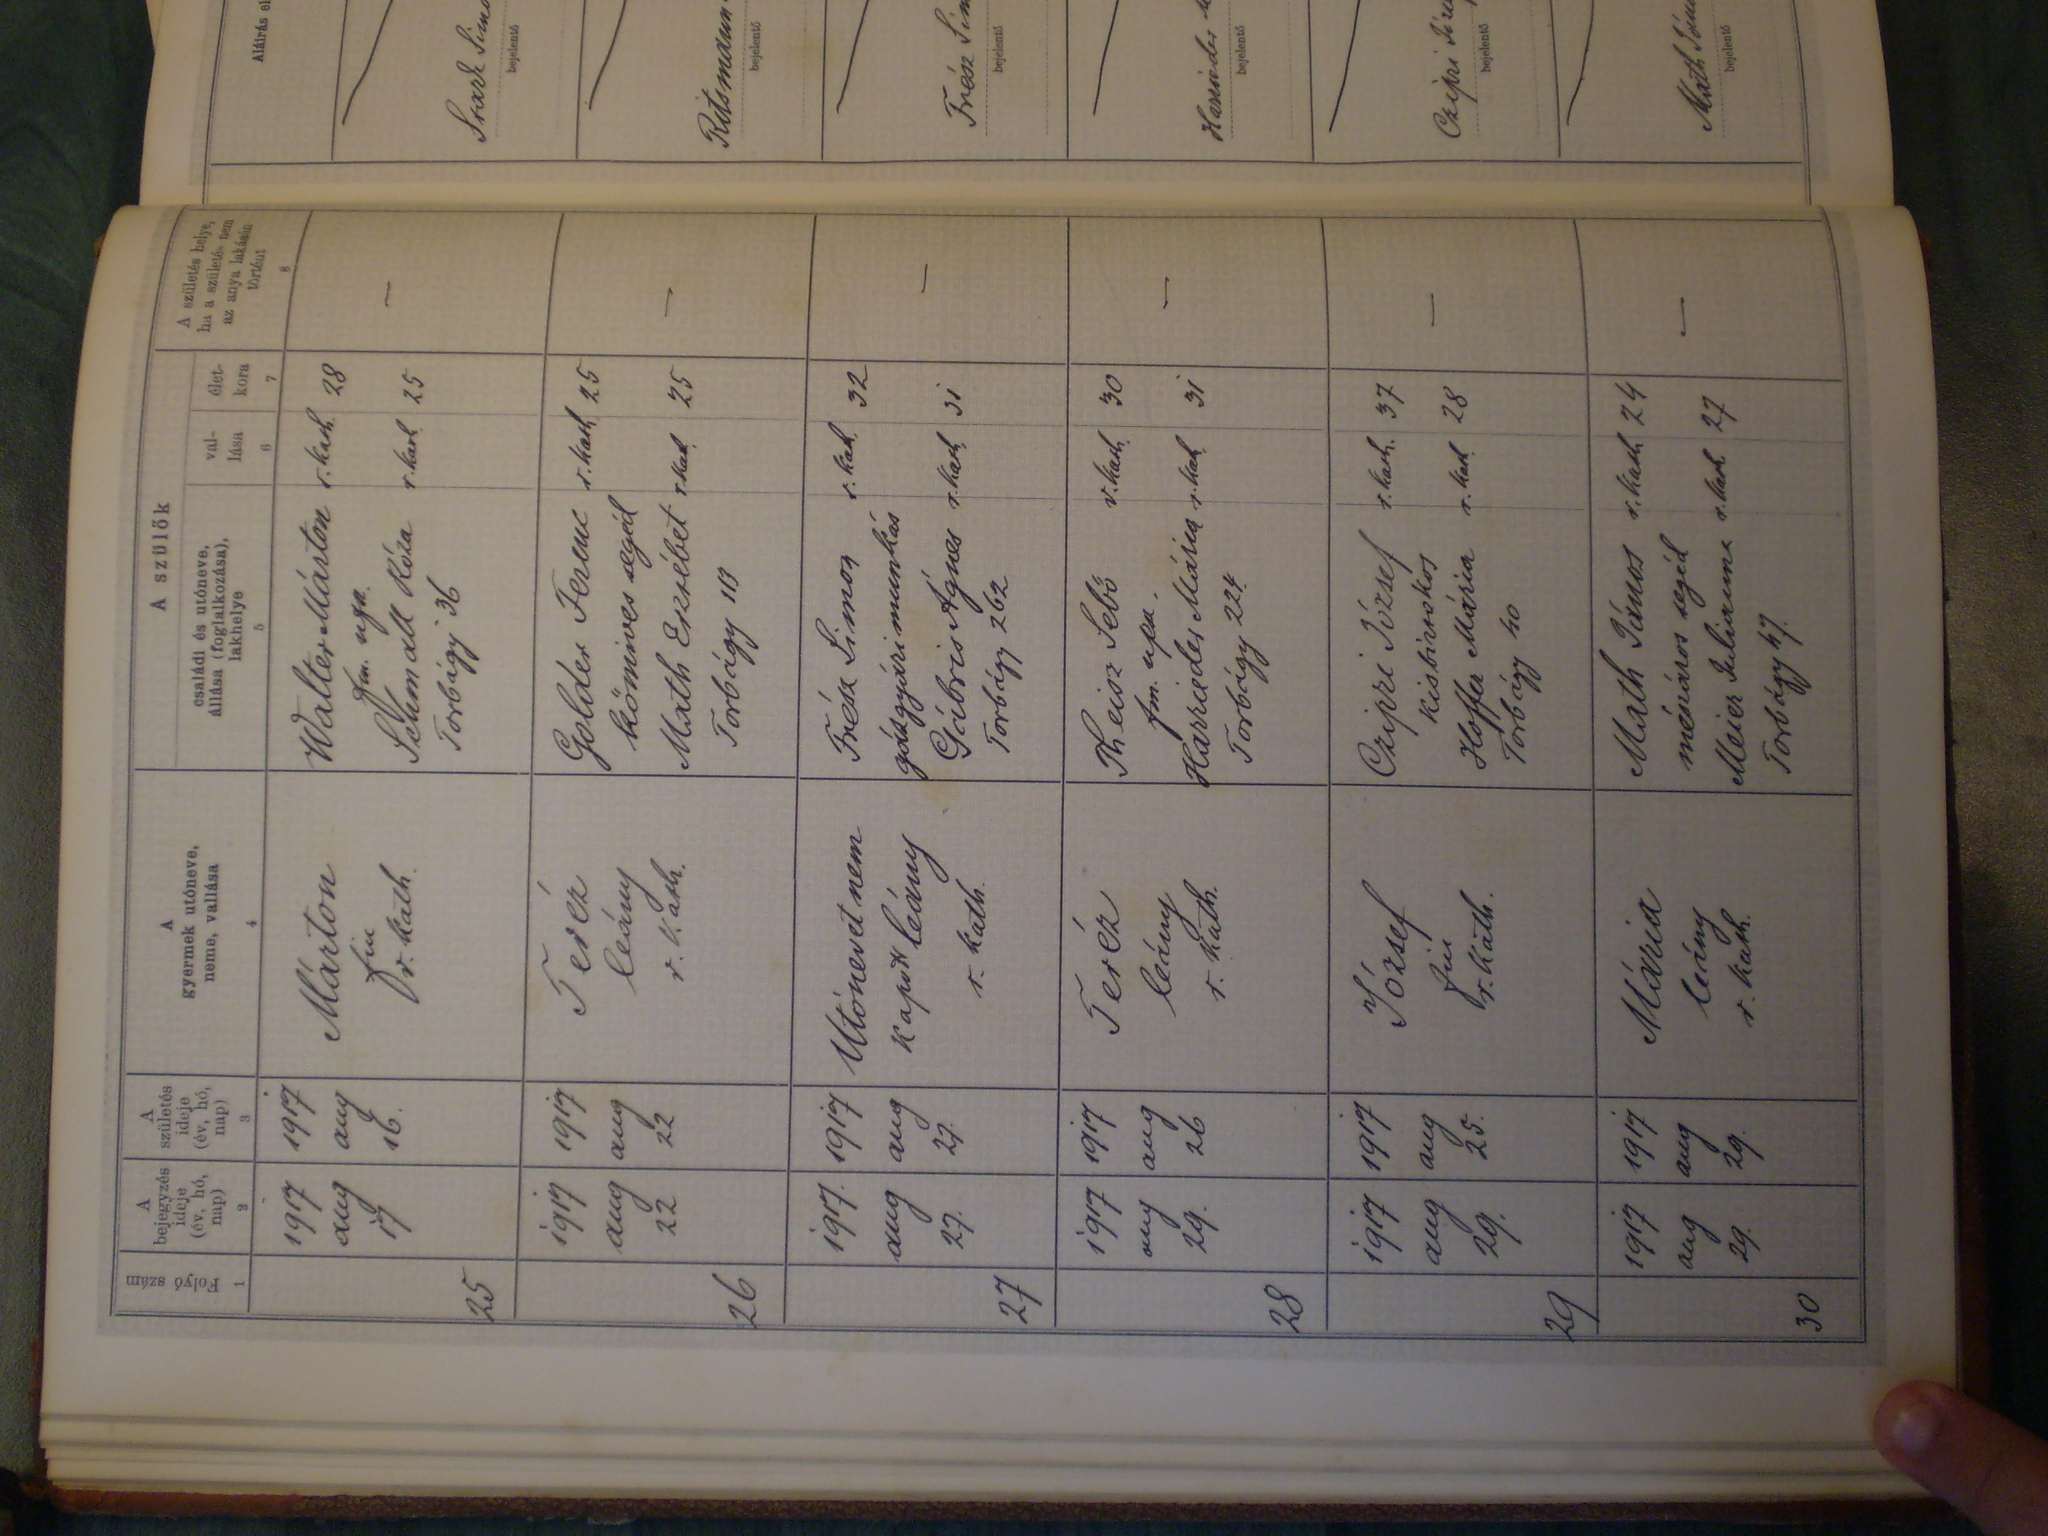 A szülők
Folyó szám
A bejegyzés ideje (év, hó, nap)
A születés ideje (év, hó, nap)
A gyermek utóneve, neme, vallása
családi és utóneve, állása (foglalkozása), lakhelye
val-lása
élet-kora
A születés helye, ha a születés nem az anya lakásán történt
1 2 3 4 5 6 7 8
25
1917 aug 17
1917 aug 16.
Márton
fiu
r. kath.
Walter Márton r. kath. 28
fm. nps.
Schmall Róza r. kath. 25
Torbágy 36
—
26
1917 aug 22
1917 aug 22
Teréz
leány
r. kath.
Golder Ferenc r. kath. 25
kőmives segéd
Math Erzsébet r. kath. 25
Torbágy 113
—
27
1917. aug 27.
1917 aug 27.
Utónevet nem
kapott leány
r. kath.
Friész Simon r. kath. 32
gőzgyári munkás
Gábris Ágnes r. kath. 31
Torbágy 262
—
28
1917 aug 29.
1917 aug 26
Teréz
leány
r. kath.
Theisz Sebő r. kath. 30
fm. nps.
Mária r. kath. 31
Torbágy 224.
—
29
1917 aug 29.
1917 aug 25.
József
fiu
r. kath.
Czipri József r. kath. 37
kisbirtokos
Hoffer Mária r. kath. 28
Torbágy 40
—
30
1917 aug 29.
1917 aug 29.
Mária
leány
r. kath.
Math János r. kath. 24
mészáros segéd
Meier Julianna r. kath. 27
Torbágy 47.
—
Aláírás el
bejelentő
Ritsmann
bejelentő
Friész Sim
bejelentő
bejelentő
Czipri
bejelentő
Math János
bejelentő